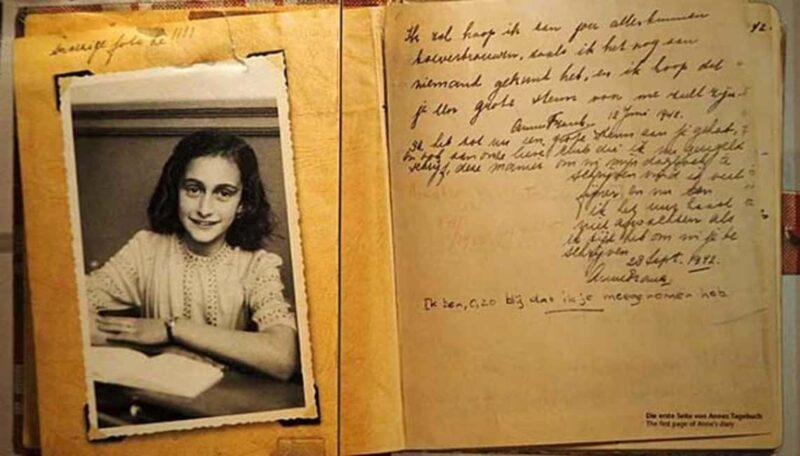 Snoezige foto hè !!!!
42.
Ik zal hoop ik aan jou alles kunnen
toevertrouwen, zoals ik het nog aan
niemand gekund heb, en ik hoop dat
je een grote steun voor me zult zijn.
Anne Frank. 12 Juni 1942.
Ik heb tot nu een grote steun aan je gehad,
en ook aan onze lieve club die ik nu geregeld
schrijf, deze manier om in mijn dagboek te
schrijven vind ik veel
fijner en nu kan
ik het uur haast
niet afwachten als
ik tijd heb om in je te
schrijven
28 Sept. 1942.
Anne Frank
Ik ben, o, zo blij dat ik je meegenomen heb
Die erste Seite von Annes Tagebuch
The first page of Anne's diary